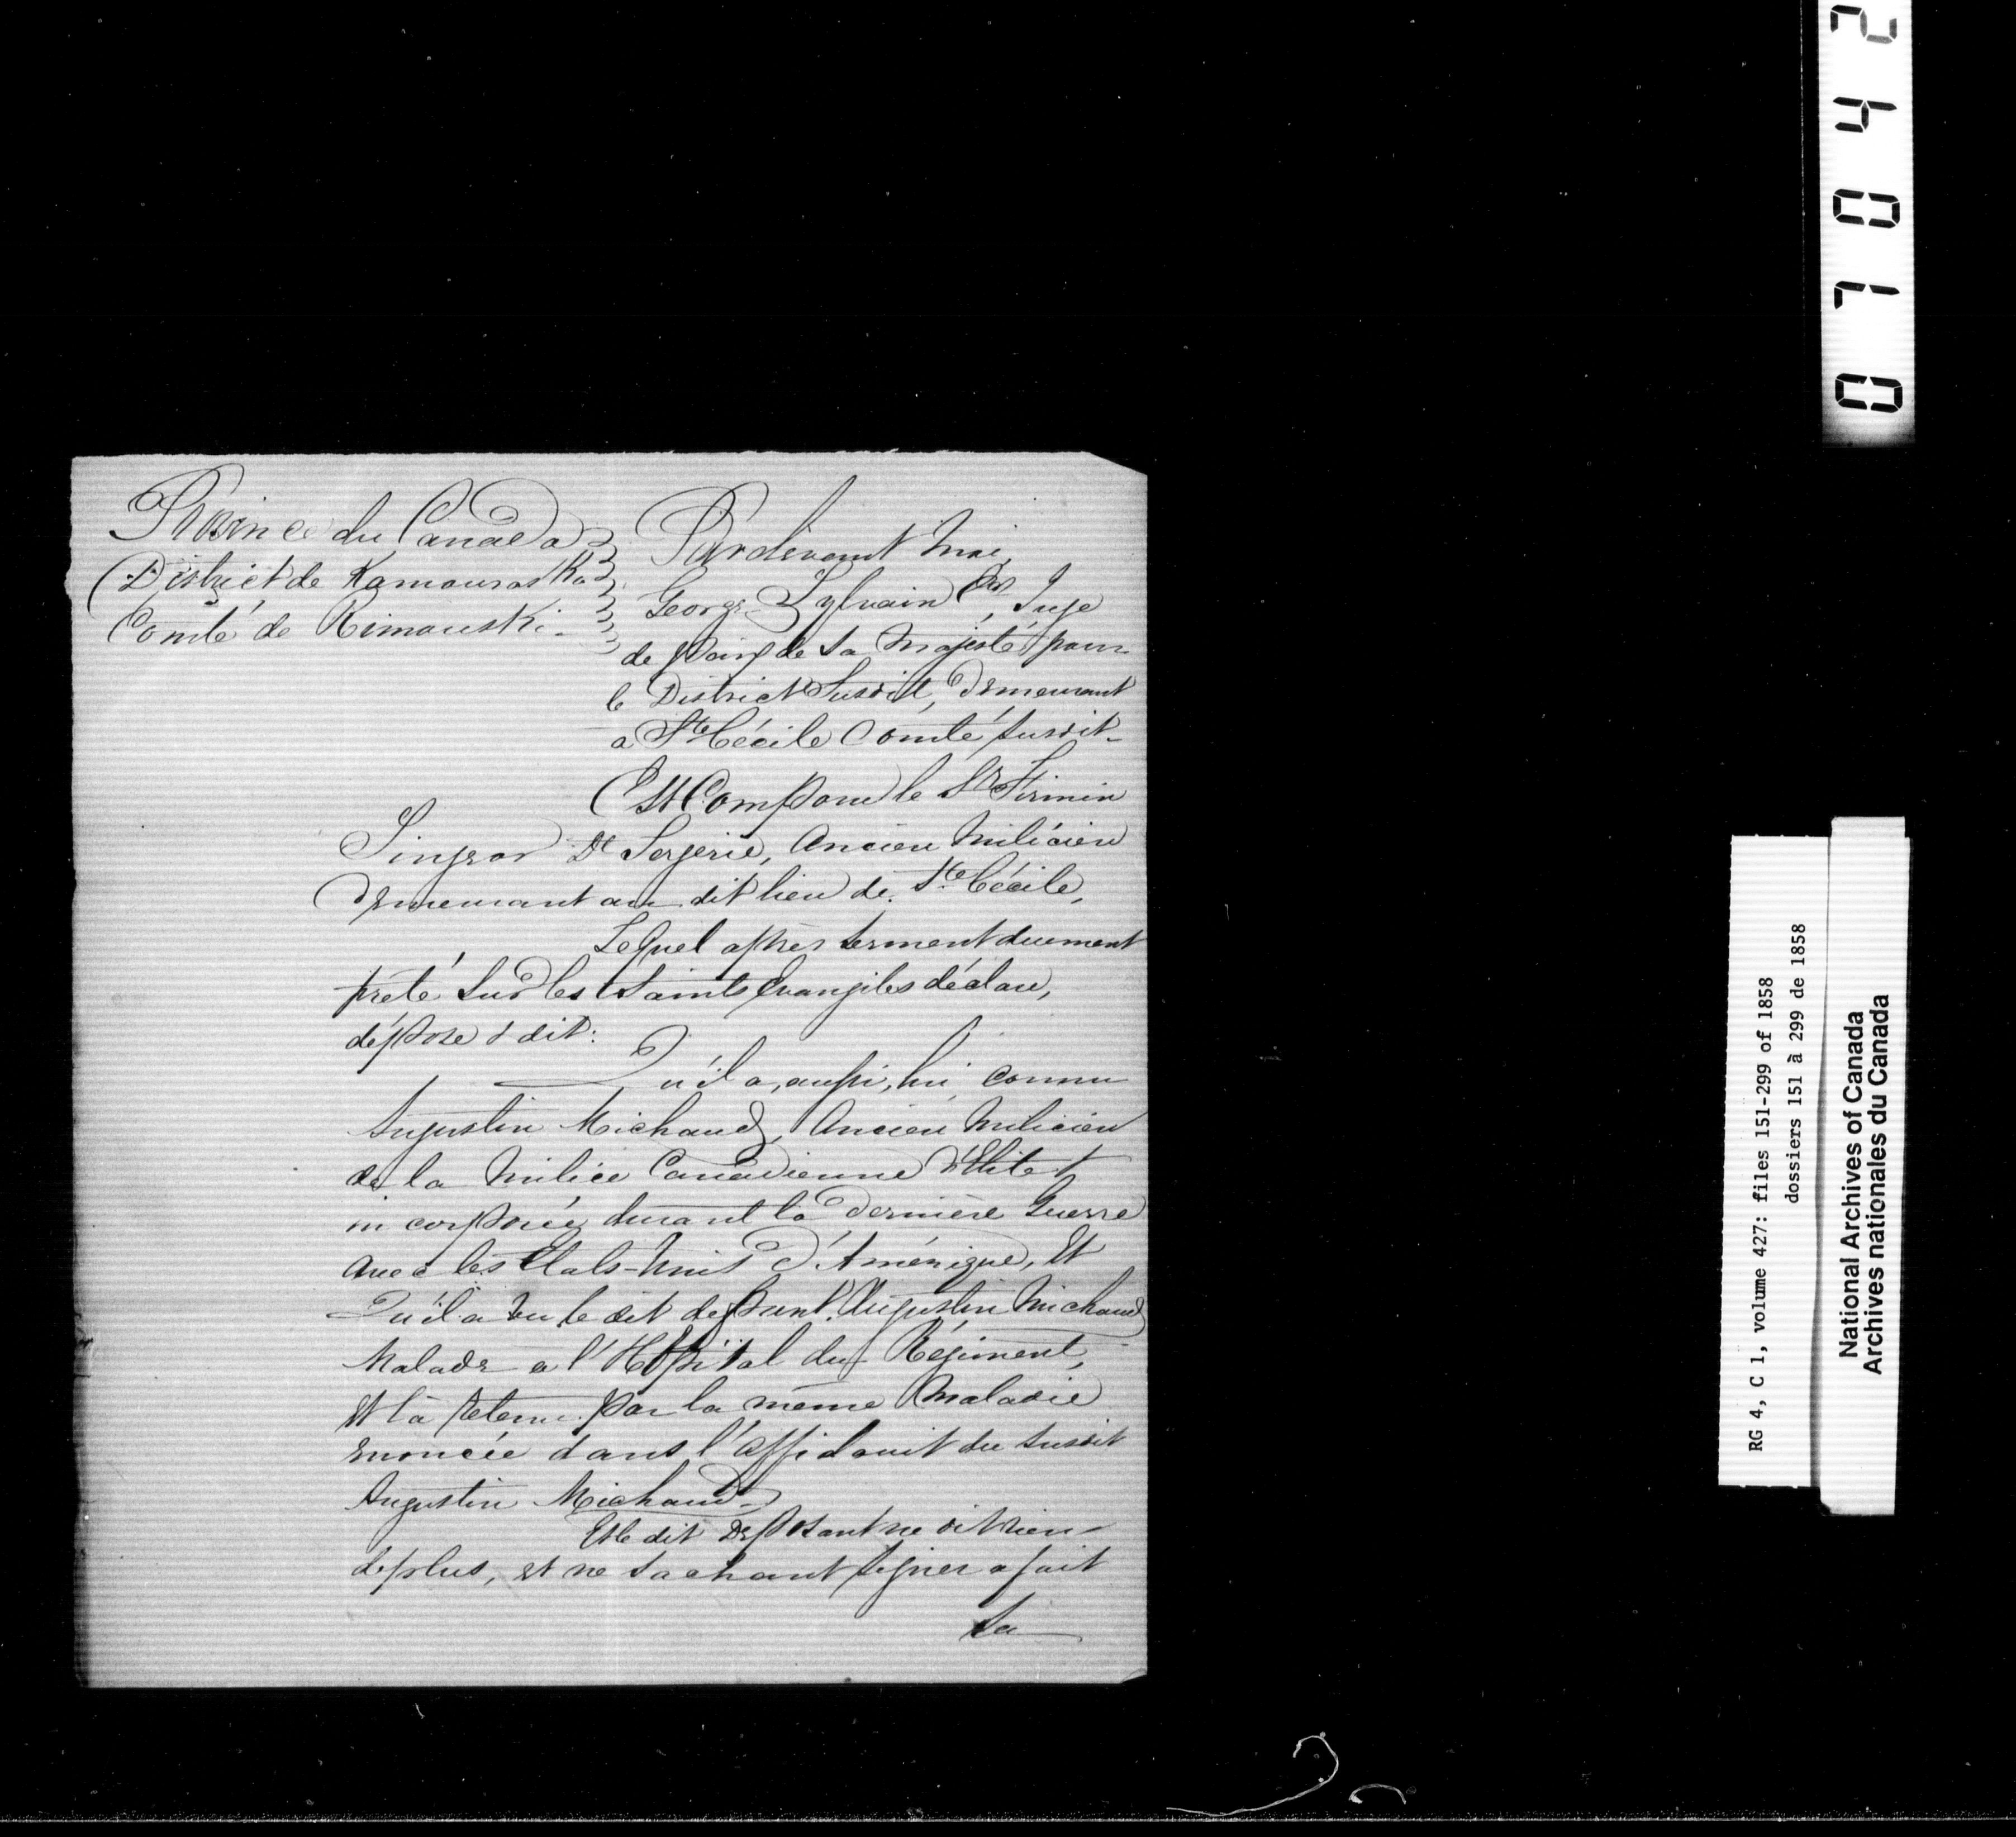 Province du Canada
District de Kamouraska
Comté de Rimouski.
Pardevant moi,
George Sylvain Ecr, Juge
de Paix de Sa Majesté pour
le District Susdit, demeurant
a Ste Cécile Comté susdit.
Est Comparu le Sr Firmin
Singror Dt Sergerie, Ancien Milicien
demeurant au dit lieu de Ste Cécile,
Lequel après serment duement
prêté sur les Saints Evangiles déclare,
dépose & dit:
Qu'il a, aussi, lui, connu
Augustin Michaud, Ancien Milicien
de la Milice Canadienne d'Elite &
incorporée, durant la dernière Guerre
avec les Etats-Unis d'Amérique, Et
Qu'il a vu le dit defunt Augustin Michaud
Malade a l'Hôpital du Régiment,
et là retenu par la même Maladie
énoncée dans l'affidavit du susdit
Augustin Michaud
Et le dit Déposant ne dit rien
de plus, et ne sachant signer a fait
Sa
07042
RG 4, C 1, volume 427: files 151-299 of 1858
dossiers 151 à 299 de 1858
National Archives of Canada
Archives nationales du Canada